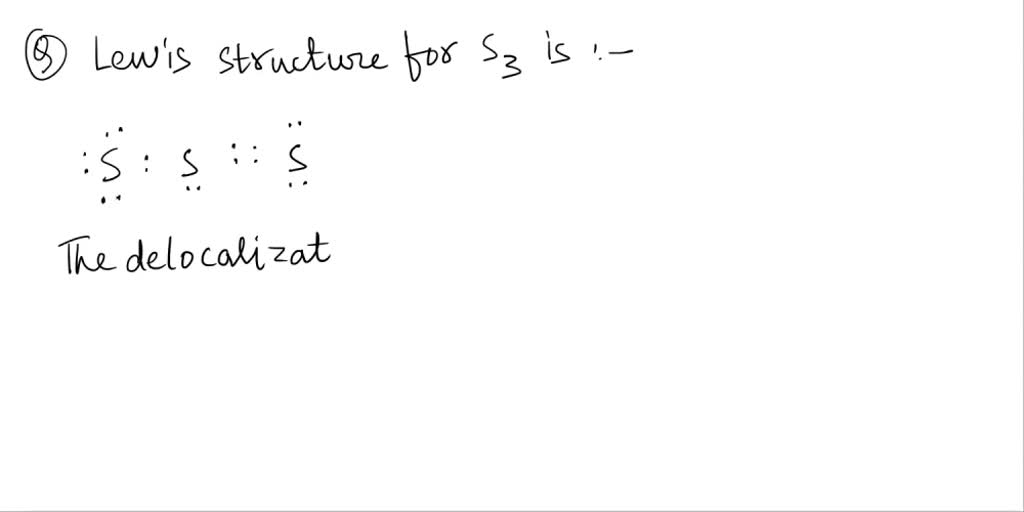 Q Lewis structure for S3 is :-
:S : S :: S
The delocalizat